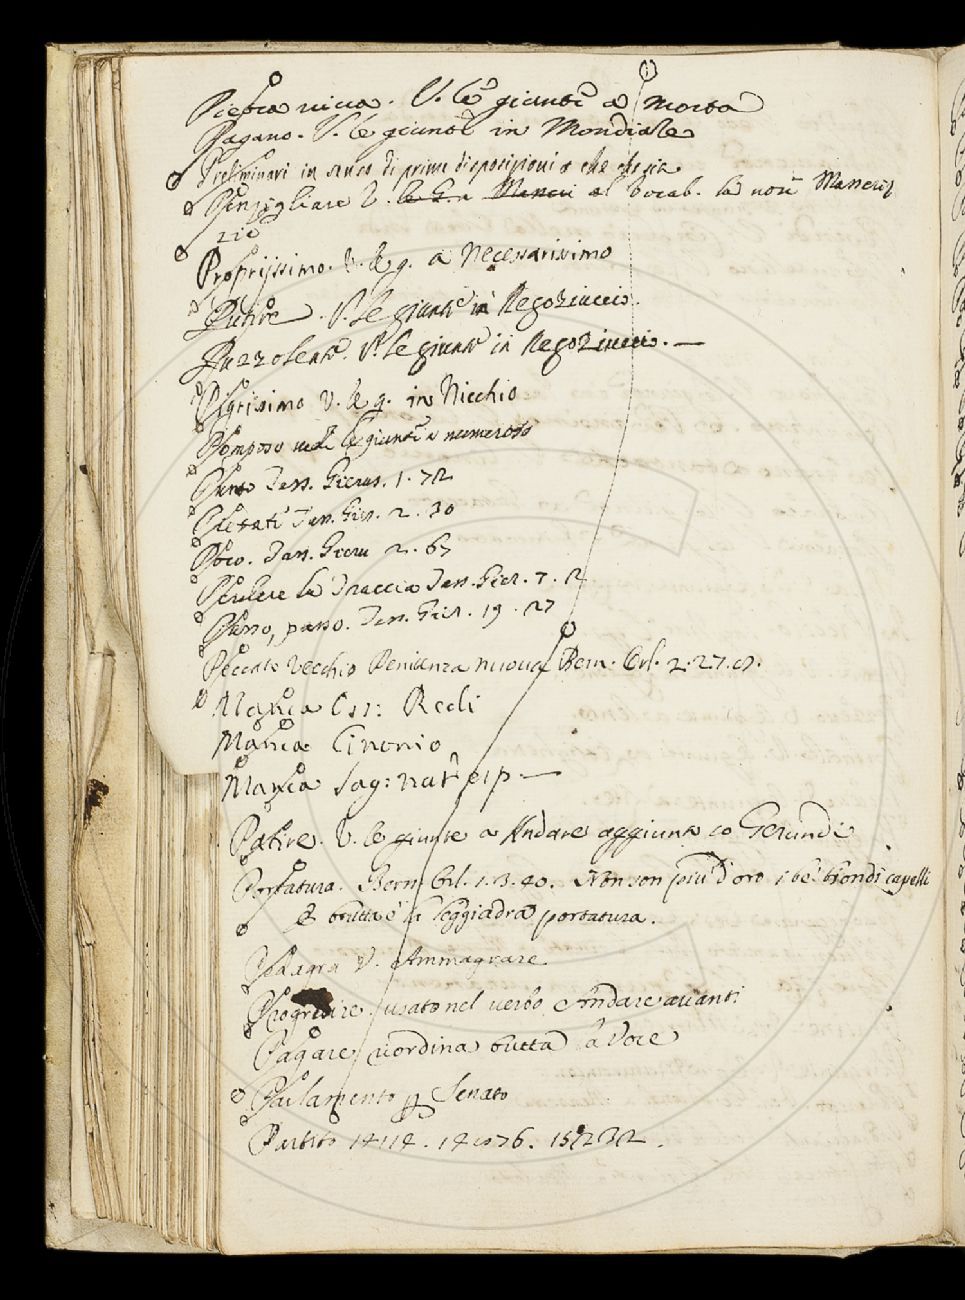 Pietra viva. V. le giunte a Morta
Pagano. V. le giunte in Mondiale
Preliminari in senco di prime disposizioni a che che sia
V. le G. a al Vocab. la voce
zio
Proprijssimo. V. le g. a Necessarissimo
Putire. V. le giunte in Negoziuccio.
Puzzolente. V. le giunte in Negoziuccio. —
Pigrissimo V. le g. in Nicchio
Pomposo vedi le giunte a numeroso
Tass. Gierus. 1. 72
Tass. Gier. 2. 30
Poco. Tass. Gieru 2. 67
Perdere la traccia Tass. Gier. 7. 2
Passo, passo. Tass. Gier. 19. 27
Peccato vecchio Penitenza nuova Bern. Orl. 2. 27.
Mancia Oss: Redi
Mancia Cinonio
Mancia Sag: nat: esp. —
Patire. V. le giunte a Andare aggiunta co Gerundi
Portatura. Bern. Orl. 1. 13. 40. Non son piu d'oro i be' biondi capelli
E brutta è la leggiadra portatura.
V. Ammagrare
Progredire usato nel verbo Andare avanti
Pagare v ordina tutta a Voce
Parlamento p Senato
Partito 14114. 14